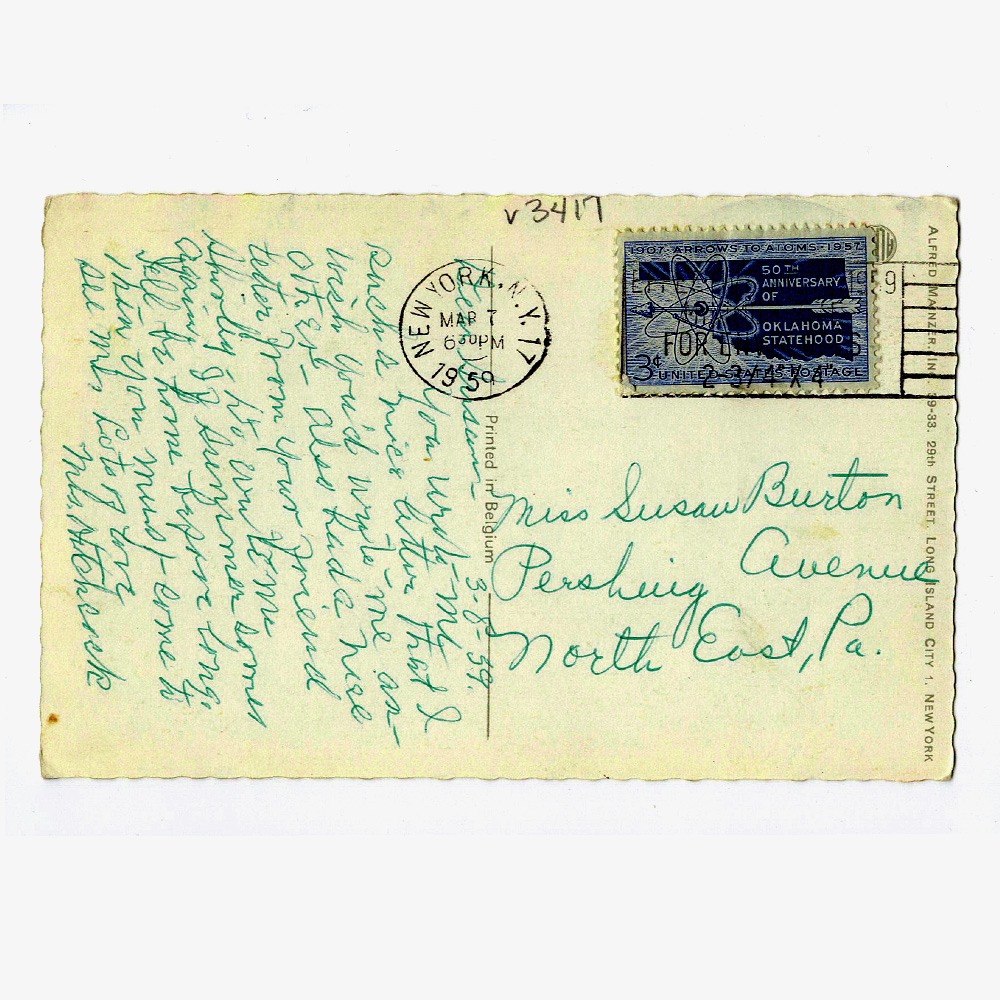 v3417
NEW YORK, N.Y. 17
MAR 7
6 30 PM
1959
1907-ARROWS TO ATOMS-1957
50TH
ANNIVERSARY
OF
OKLAHOMA
STATEHOOD
3¢
UNITED STATES POSTAGE
FOR
3-8-59.
Dear Susan-
You write-me
such a nice letter that I
wish you'd write-me an-
other- Also had a nice
letter from your friend
shortly
again. summer comes
I'll be home before long,
then you must come to
see me. Lots of love
Mrs. Hitchcock
Printed in Belgium
Miss Susan Burton
Pershing Avenue
North East, Pa.
ALFRED MAINZER, INC. 39-33. 29th STREET, LONG ISLAND CITY 1, NEW YORK